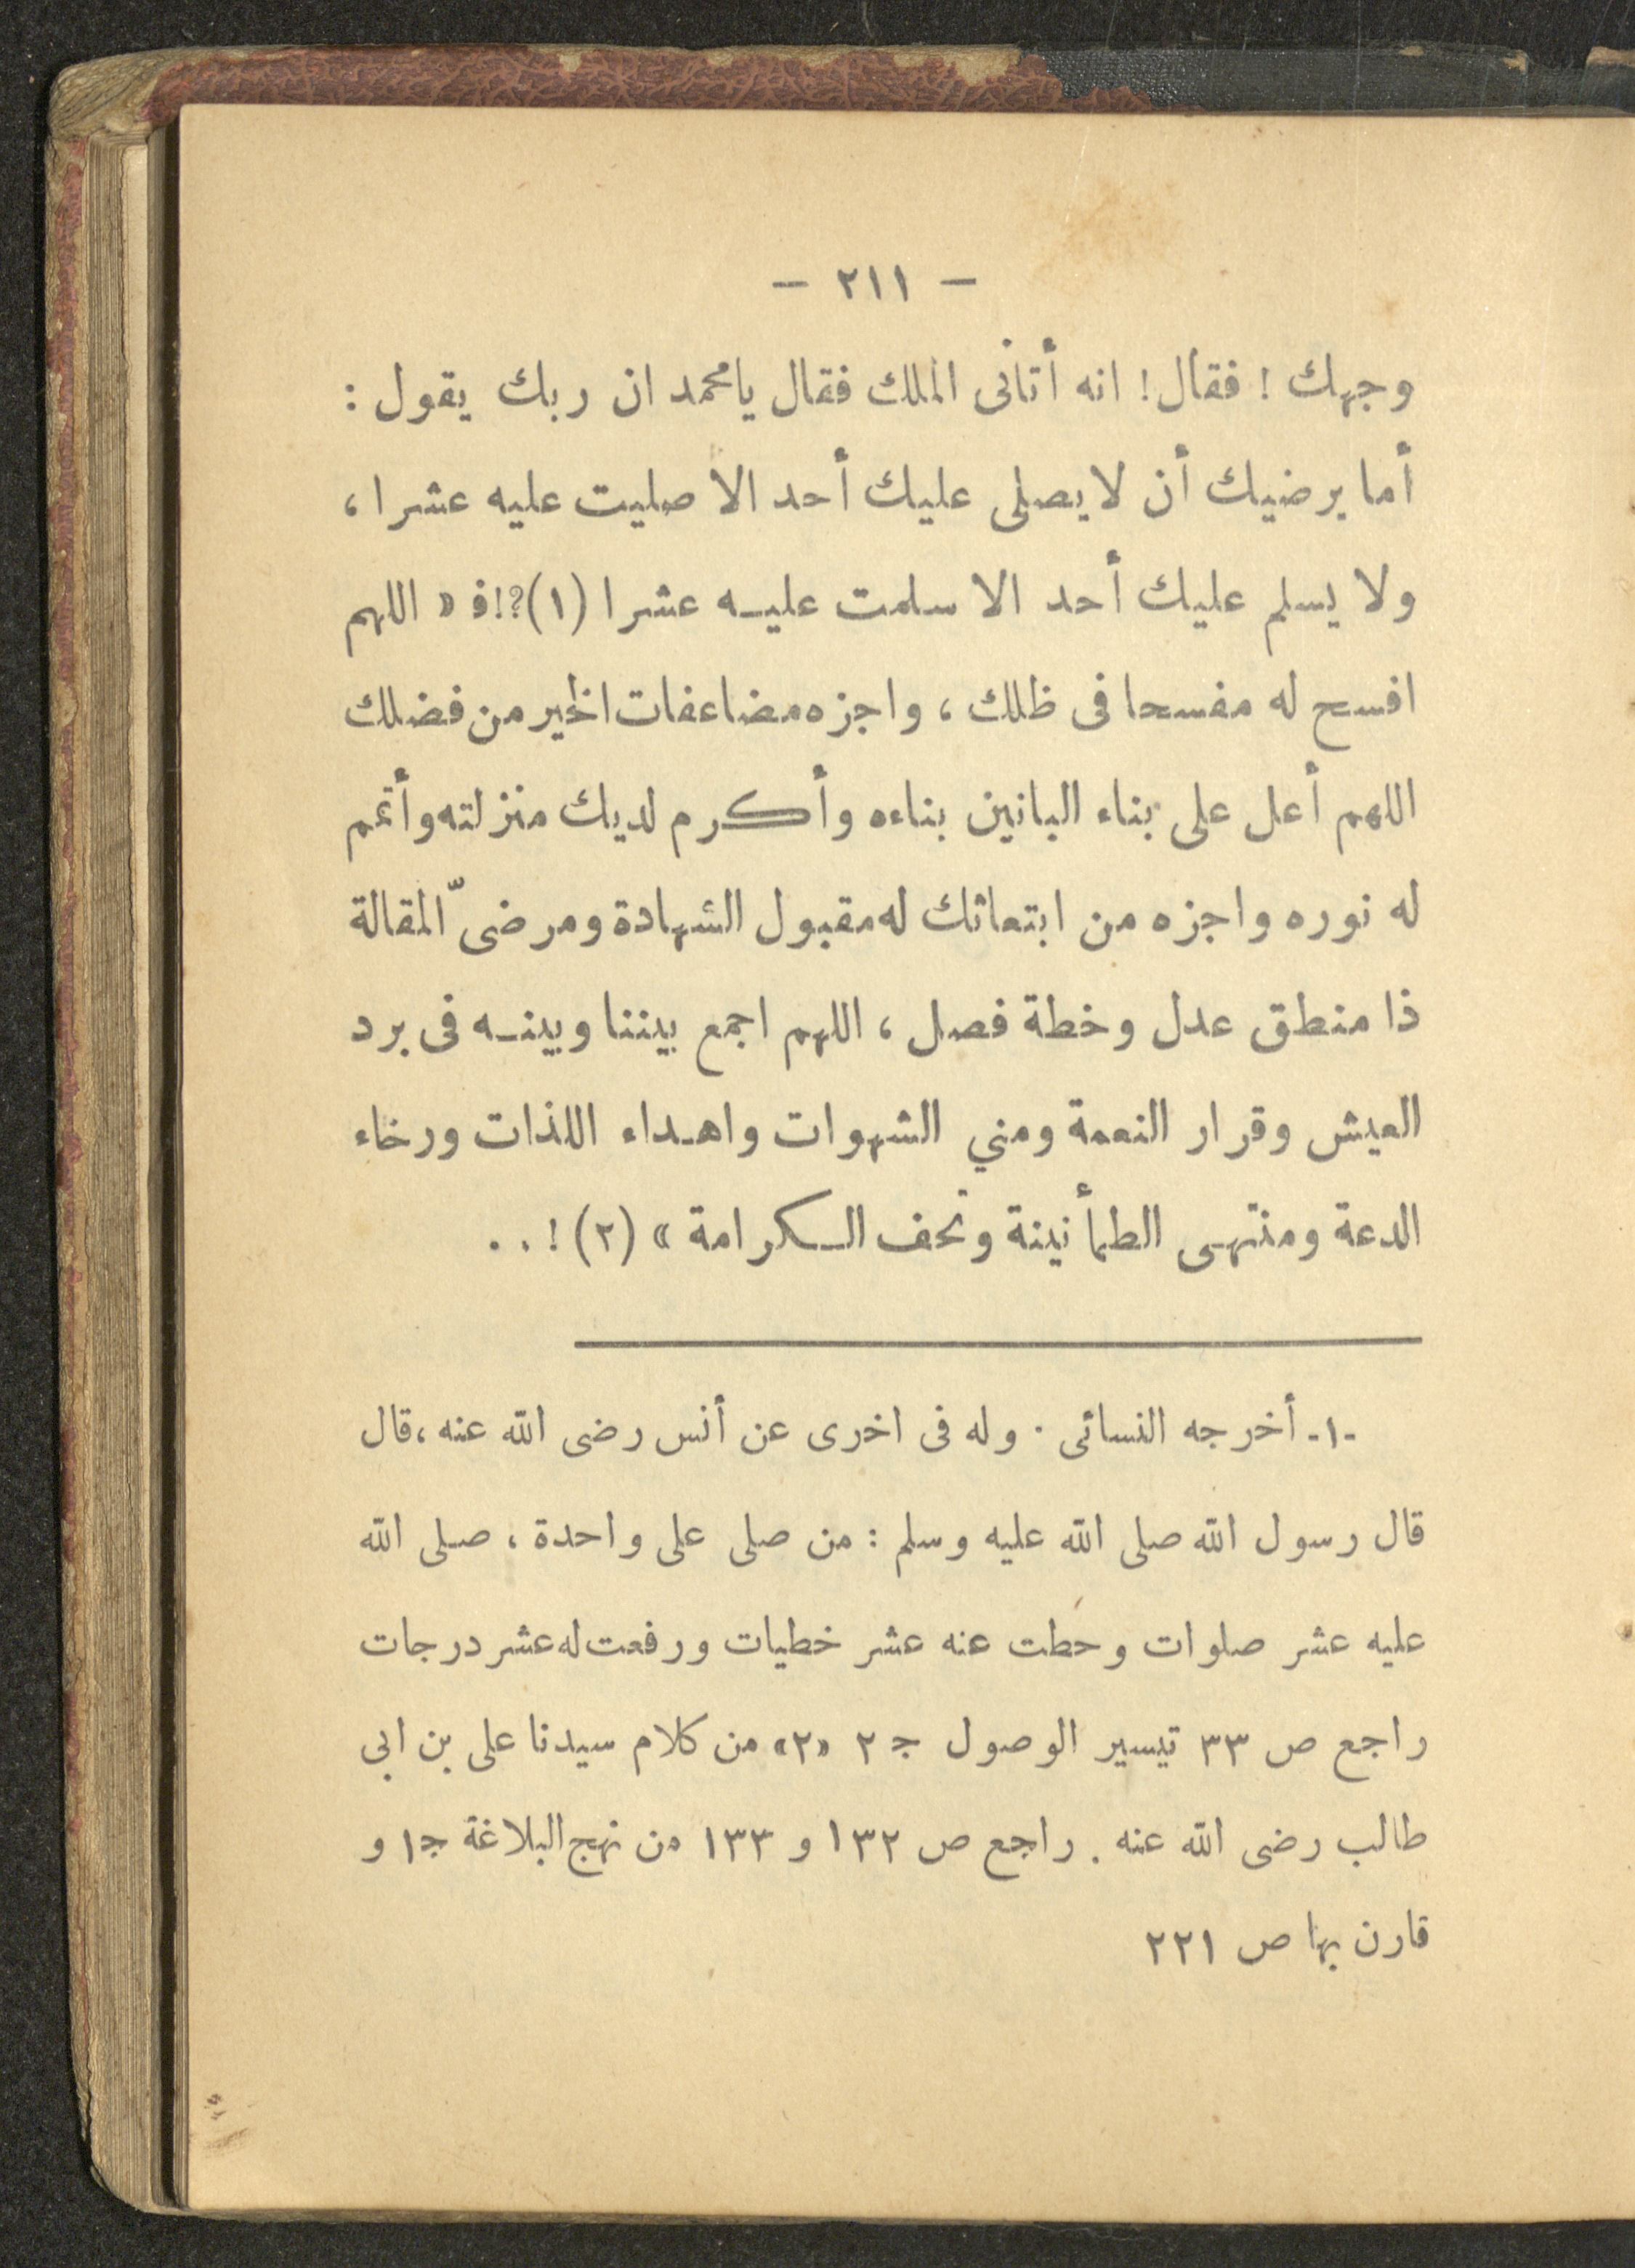 — ٢١١ —
وجهك ! فقال ! انه أتانى الملك فقال يامحمد ان ربك يقول :
أما يرضيك أن لايصلى عليك أحد الا صليت عليه عشرا ،
ولا يسلم عليك أحد الا سلمت عليـه عشرا (١)؟!ف « اللهم
افسح له مفسحا فى ظلك ، واجزه مضاعفات الخير من فضلك
اللهم أعل على بناء البانين بناءه وأكرم لديك منزلته وأتمم
له نوره واجزه من ابتعاثك له مقبول الشهادة ومرضىّ المقالة
ذا منطق عدل وخطة فصل ، اللهم اجمع بيننا وبينـه فى برد
العيش وقرار النعمة ومني الشهوات واهـداء اللذات ورخاء
الدعة ومنتهى الطمأنينة وتحف الـكرامة » (٢) ! . .
-١- أخرجه النسائى . وله فى اخرى عن أنس رضى الله عنه ، قال
قال رسول الله صلى الله عليه وسلم : من صلى على واحدة ، صلى الله
عليه عشر صلوات وحطت عنه عشر خطيات ورفعت له عشر درجات
راجع ص ٣٣ تيسير الوصول ج ٢ «٢» من كلام سيدنا على بن ابى
طالب رضى الله عنه . راجع ص ١٣٢ و ١٣٣ من نهج البلاغة ج١ و
قارن بها ص ٢٢١